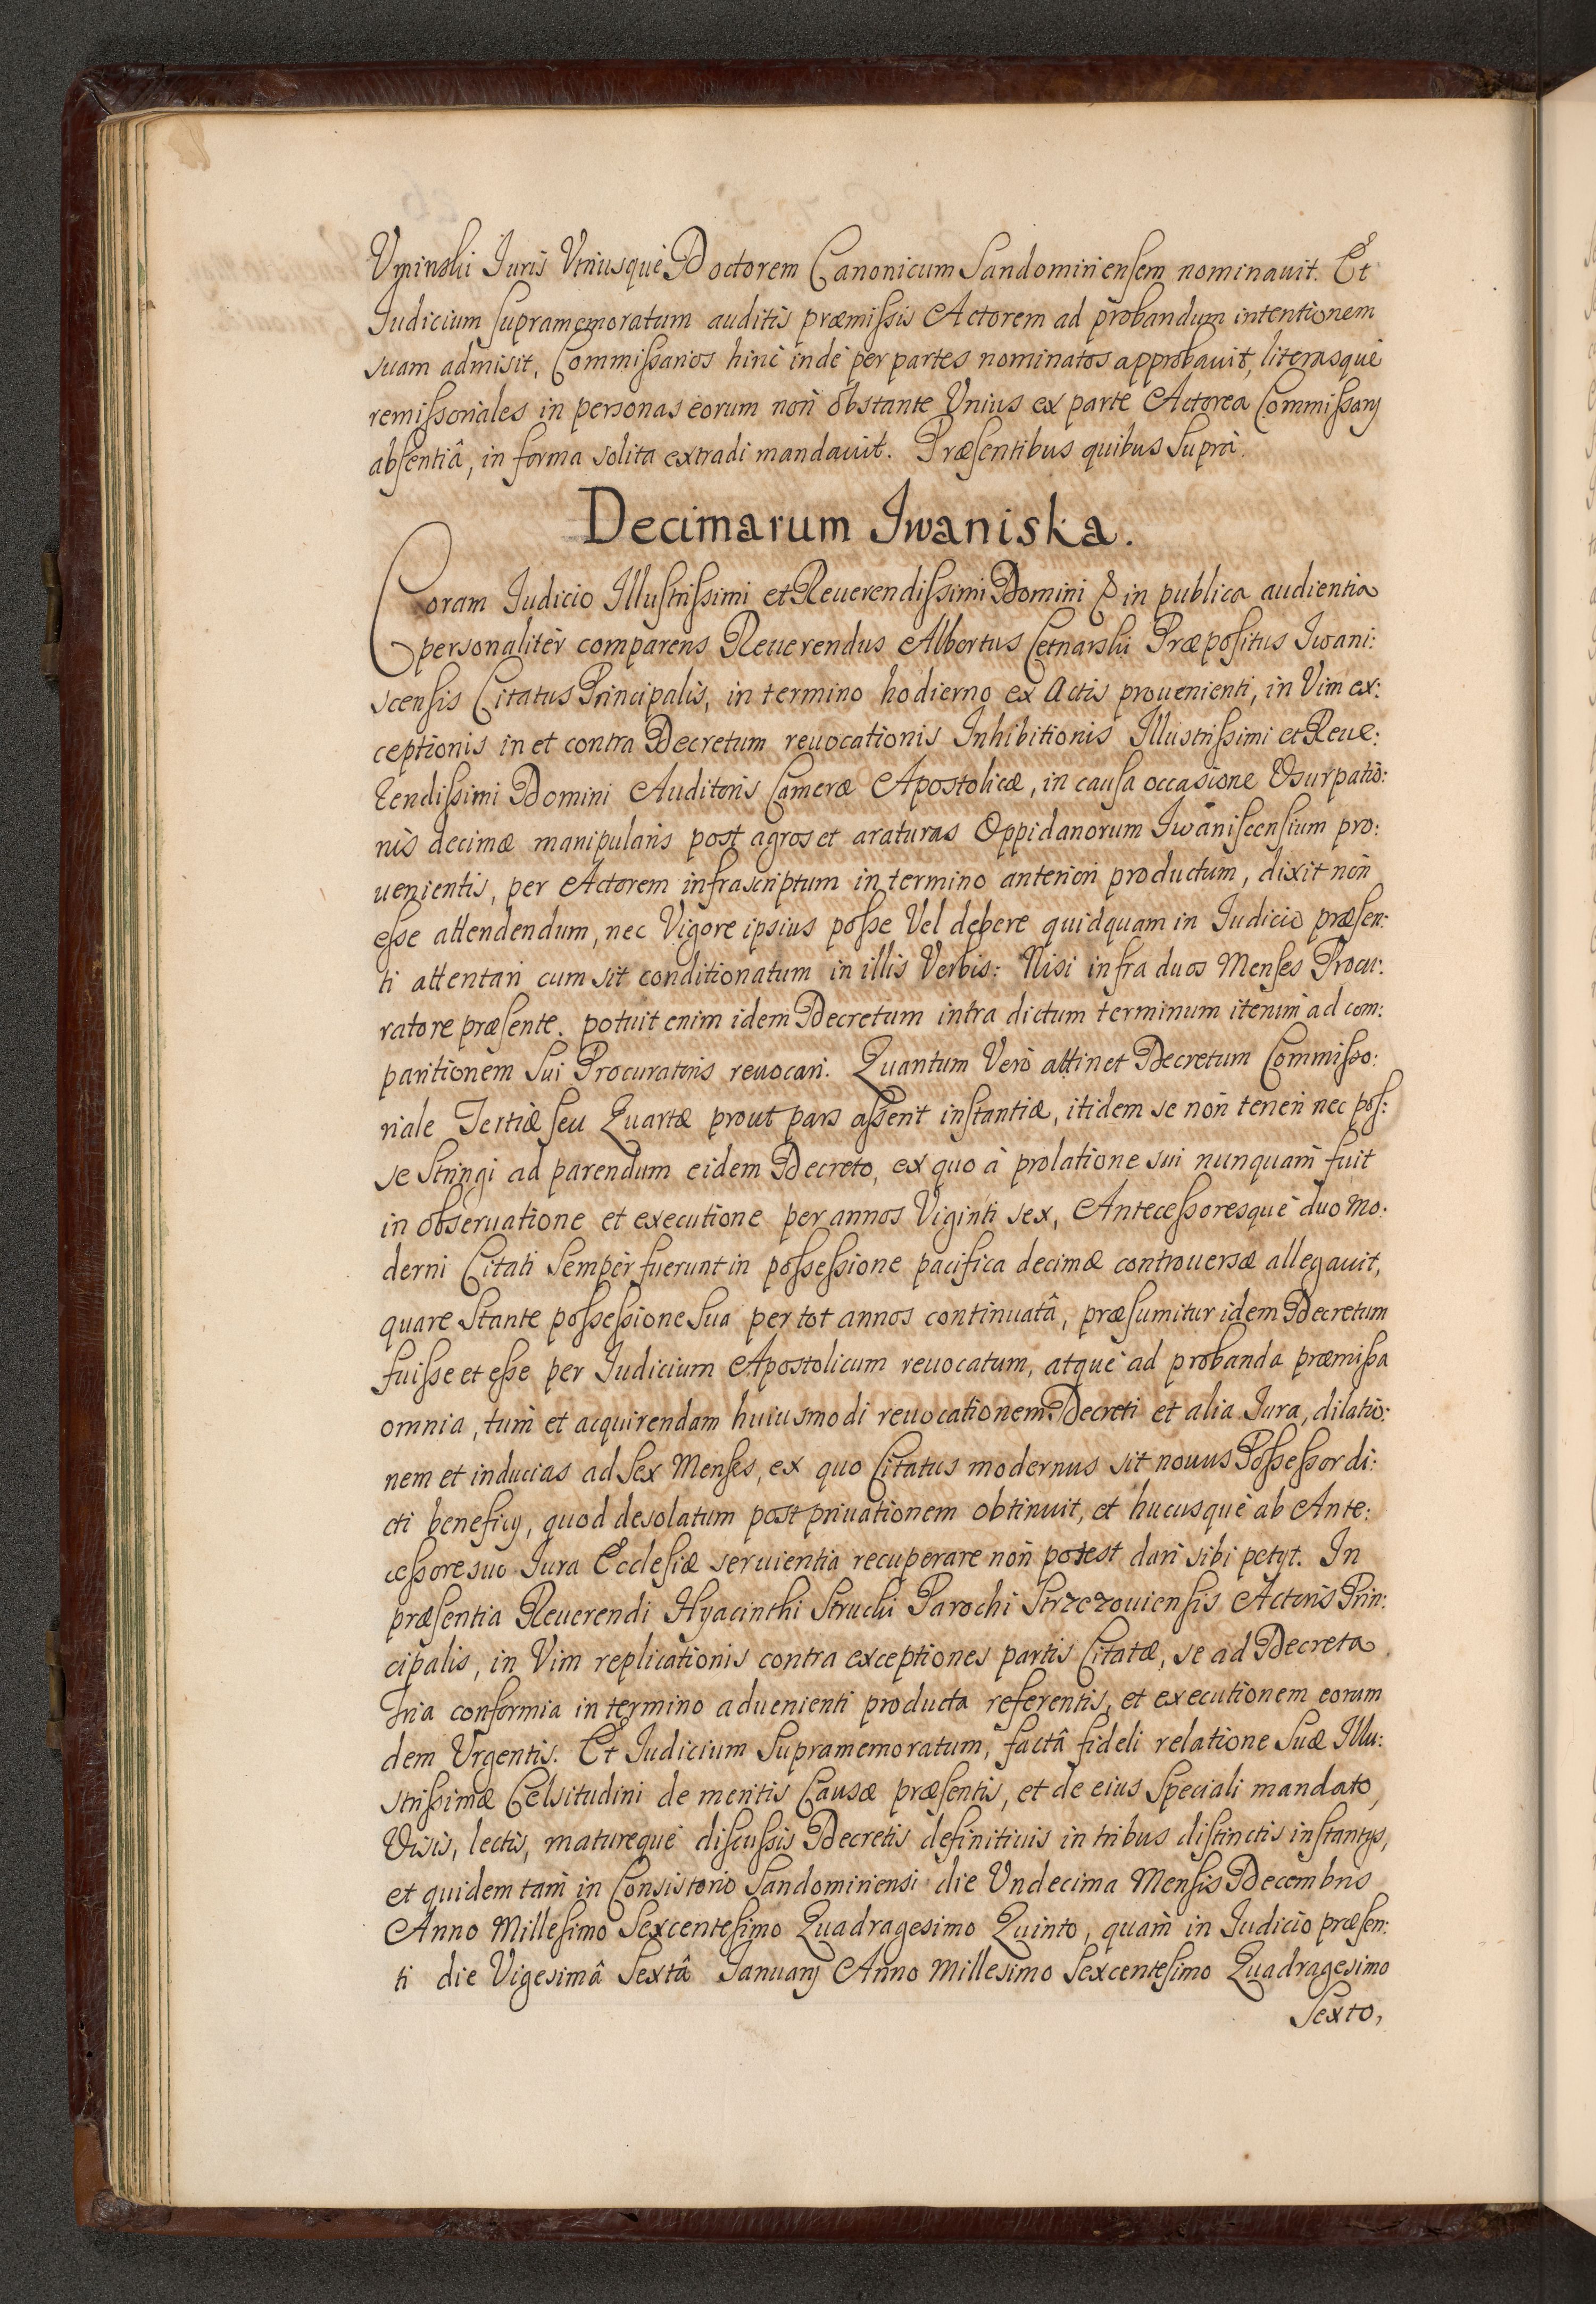 Uminski Iuris Utriusquè Doctorem Canonicum Sandomiriensem nominauit. Et
Iudicium supramemoratum auditis præmissis Actorem ad probandum intentionem
suam admisit, Commissarios hinc indè per partes nominatos approbauit, literasquè
remissoriales in personas eorum non obstante Unius ex parte Actorea Commissarij
absentiâ, in forma solita extradi mandauit. Præsentibus quibus suprà.
Decimarum Iwaniska.
Coram Iudicio Illustrissimi et Reuerendissimi Domini & in publica audientia
personalitèr comparens Reuerendus Albertus Cetnarski Præpositus Iwani:
scensis Citatus Principalis, in termino hodierno ex Actis prouenienti, in Vim ex:
ceptionis in et contra Decretum reuocationis Inhibitionis Illustrissimi et Reue:
rendissimi Domini Auditoris Cameræ Apostolicæ, in causa occasione Usurpatio:
nis decimæ manipularis post agros et araturas Oppidanorum Iwaniscensium pro:
uenientis, per Actorem infrascriptum in termino anteriori productum, dixit non
esse attendendum, nec Vigore ipsius posse Vel debere quidquam in Iudicio præsen:
ti attentari cum sit conditionatum in illis Verbis: Nisi infra duos Menses Procu:
ratore præsente. potuit enim idem Decretum intra dictum terminum iterum ad com:
paritionem sui Procuratoris reuocari. Quantum Verò attinet Decretum Commisso:
riale Tertiæ seu Quartæ prout pars asserit instantiæ, itidem se non teneri nec pos:
se stringi ad parendum eidem Decreto, ex quo à prolatione sui nunquam fuit
in obseruatione et executione per annos Viginti sex, Antecessoresquè duo Mo:
derni Citati sempèr fuerunt in possessione pacifica decimæ controuersæ allegauit,
quare stante possessione sua per tot annos continuatâ, præsumitur idem Decretum
fuisse et esse per Iudicium Apostolicum reuocatum, atquè ad probanda præmissa
omnia, tum et acquirendam huiusmodi reuocationem Decreti et alia Iura, dilatio:
nem et inducias ad sex Menses, ex quo Citatus modernus sit nouus Possessor di:
cti beneficij, quod desolatum post priuationem obtinuit, et hucusquè ab Ante:
cessore suo Iura Ecclesiæ seruientia recuperare non potest dari sibi petijt. In
præsentia Reuerendi Hyacinthi Strucki Parochi Strzezouiensis Actoris Prin:
cipalis, in Vim replicationis contra exceptiones partis Citatæ, se ad Decreta
Tria conformia in termino aduenienti producta referentis, et executionem eorum
dem Urgentis. Et Iudicium supramemoratum, factâ fideli relatione Suæ Illu:
strissimæ Celsitudini de meritis Causæ præsentis, et de eius speciali mandato,
Visis, lectis, maturequè discussis Decretis definitiuis in tribus distinctis instantijs,
et quidem tam in Consistorio Sandomiriensi die Undecima Mensis Decembris
Anno Millesimo Sexcentesimo Quadragesimo Quinto, quam in Iudicio præsen:
ti die Vigesimâ Sextâ Ianuarij Anno Millesimo Sexcentesimo Quadragesimo
Sexto,